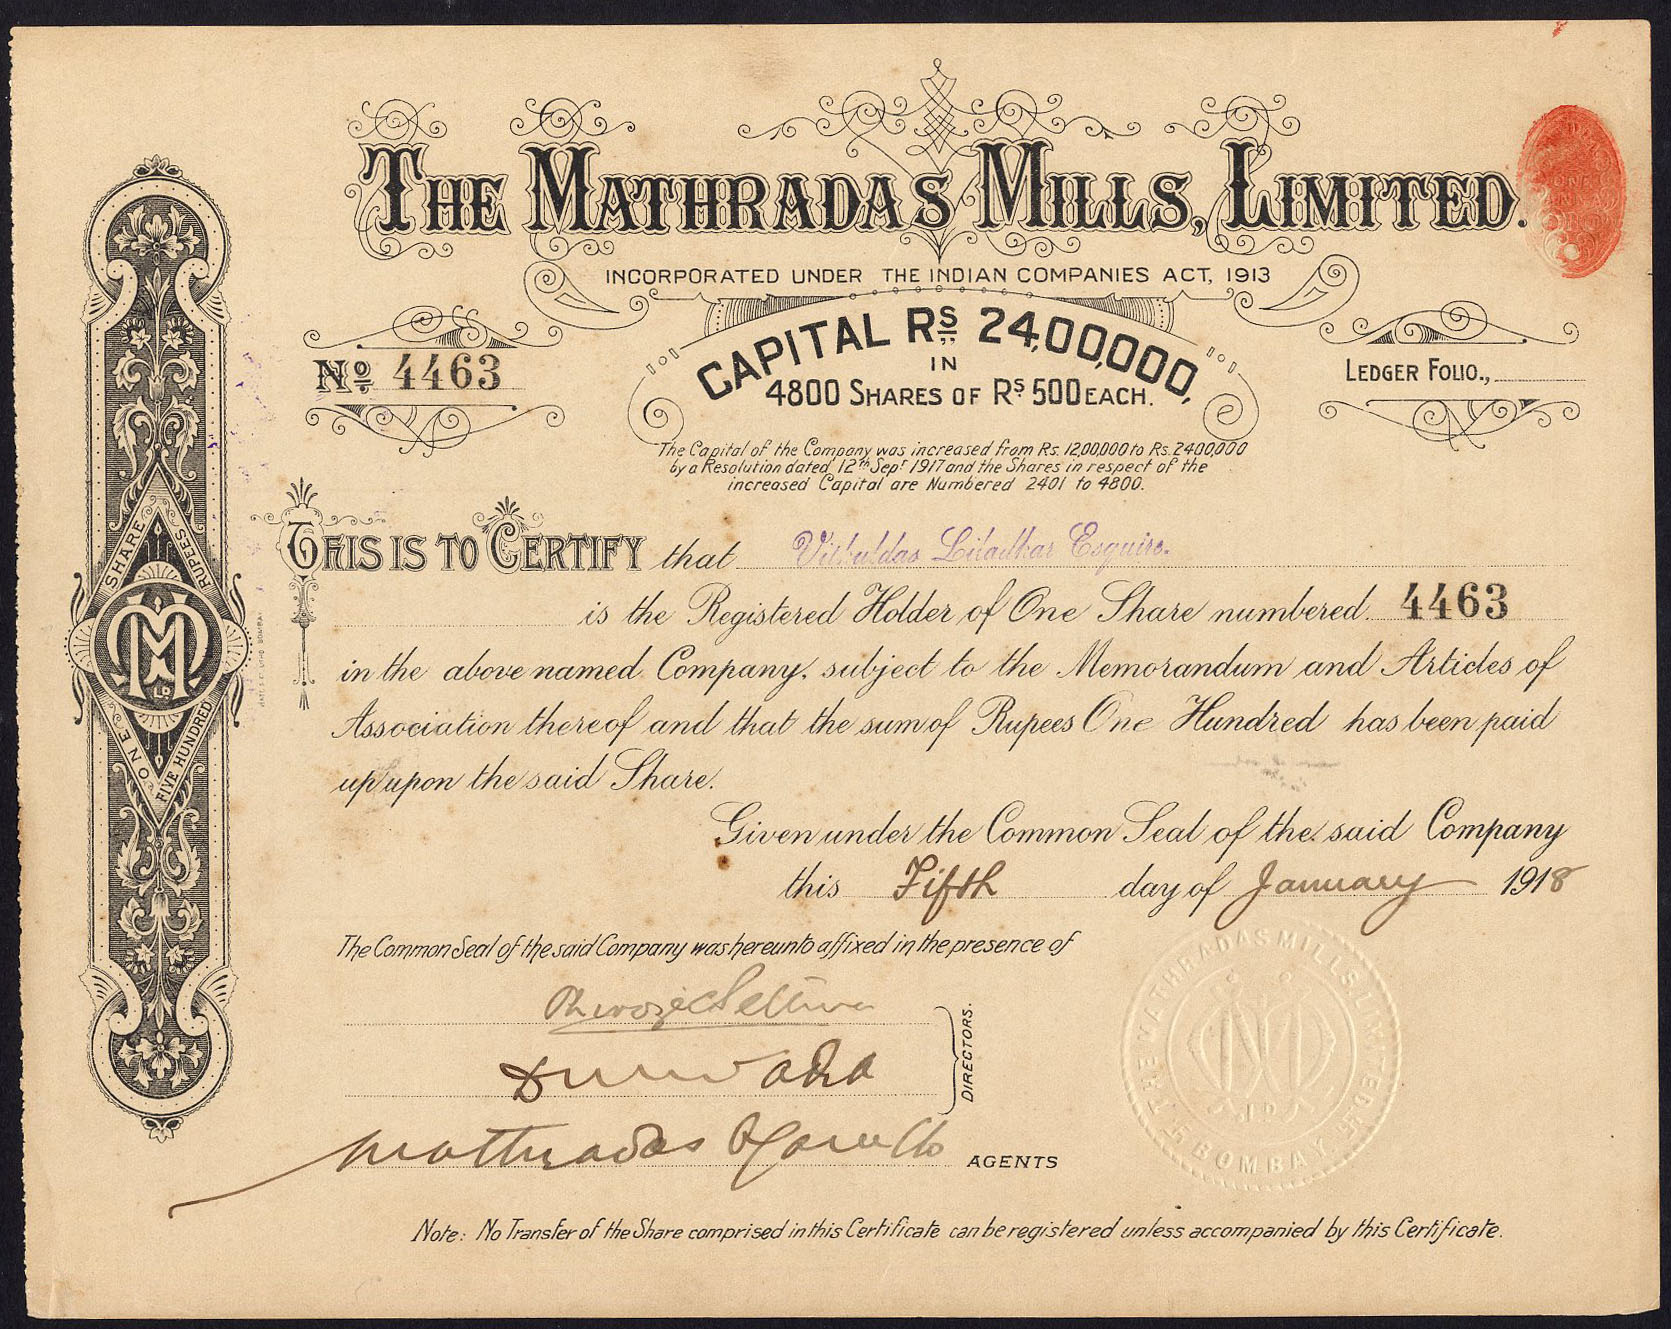 THE MATHRADAS MILLS, LIMITED.
INCORPORATED UNDER THE INDIAN COMPANIES ACT, 1913
CAPITAL RS 24,00,000,
IN
4800 SHARES OF RS 500 EACH.
No 4463
LEDGER FOLIO.,
The Capital of the Company was increased from Rs. 12,00,000 to Rs. 2400,000
by a Resolution dated 12th Sepr 1917 and the Shares in respect of the
increased Capital are Numbered 2401 to 4800.
THIS IS TO CERTIFY that Vithuldas Liladhar Esquire.
is the Registered Holder of One Share numbered 4463
in the above named Company, subject to the Memorandum and Articles of
Association thereof and that the sum of Rupees One Hundred has been paid
up upon the said Share.
Given under the Common Seal of the said Company
this Fifth day of January 1918
The Common Seal of the said Company was hereunto affixed in the presence of
DIRECTORS.
Mathradas
AGENTS
Note: No Transfer of the Share comprised in this Certificate can be registered unless accompanied by this Certificate.
SHARE
RUPEES
MM
LD
ONE
FIVE HUNDRED
THE MATHRADAS MILLS LIMITED
BOMBAY
ONE